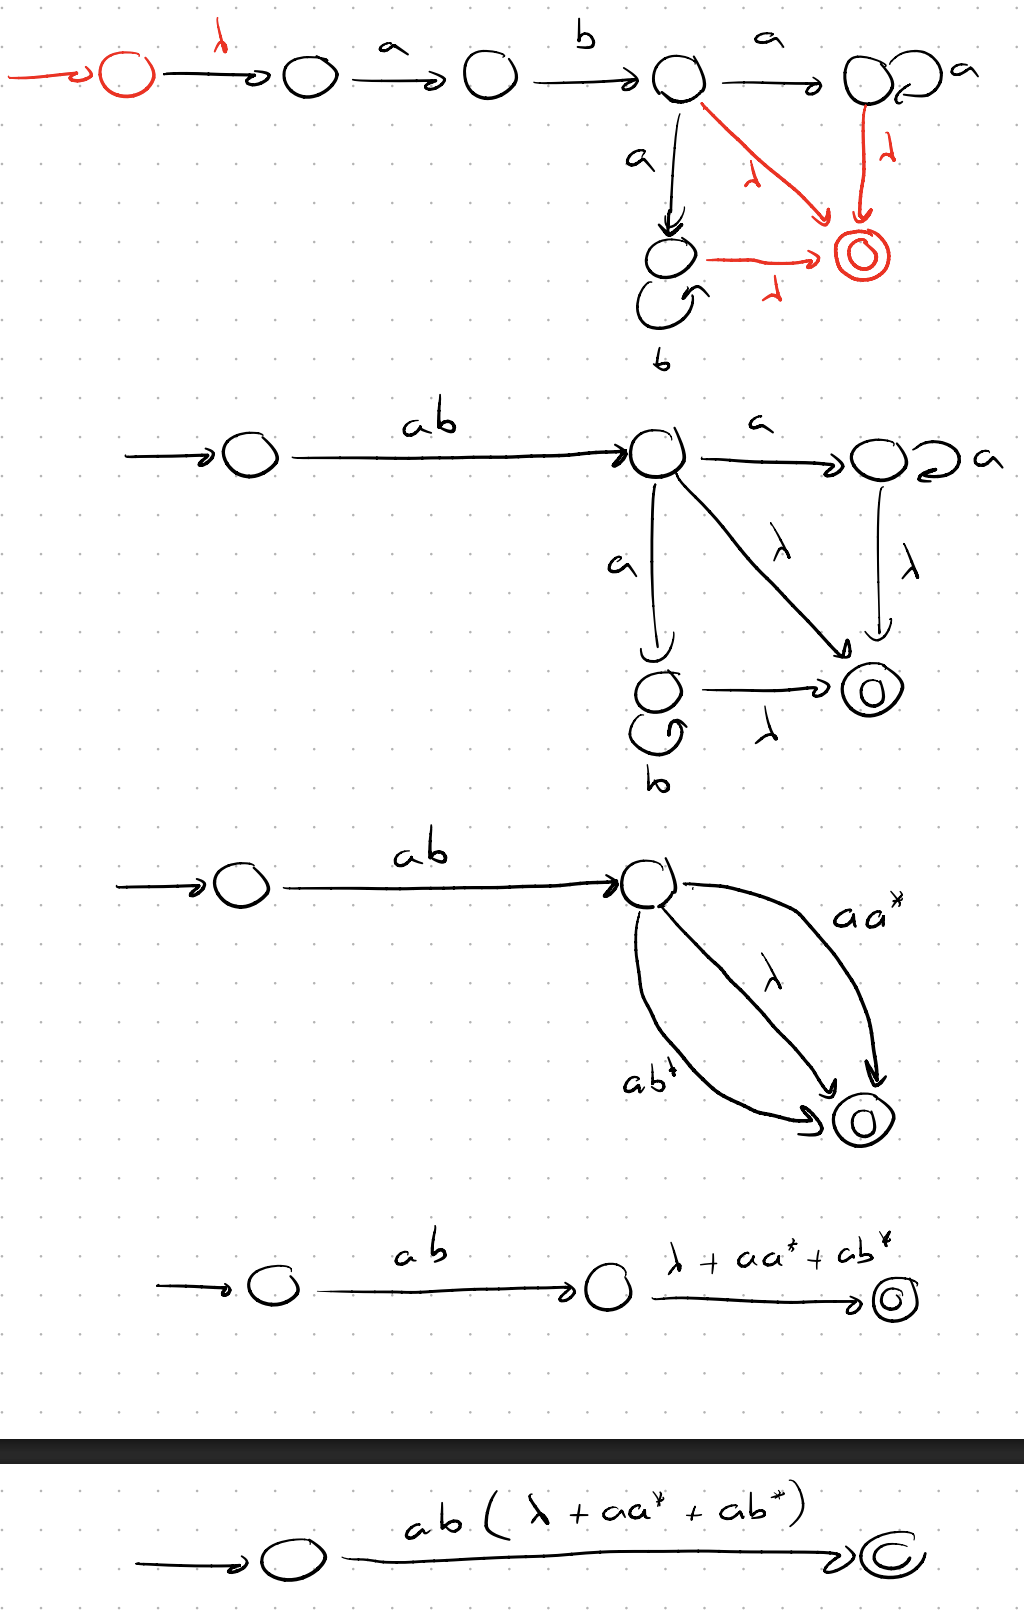 λ a b a
a
a λ λ
λ
b
ab a
a
a λ λ
λ
b
ab
aa*
λ
ab*
ab λ + aa* + ab*
ab ( λ + aa* + ab* )